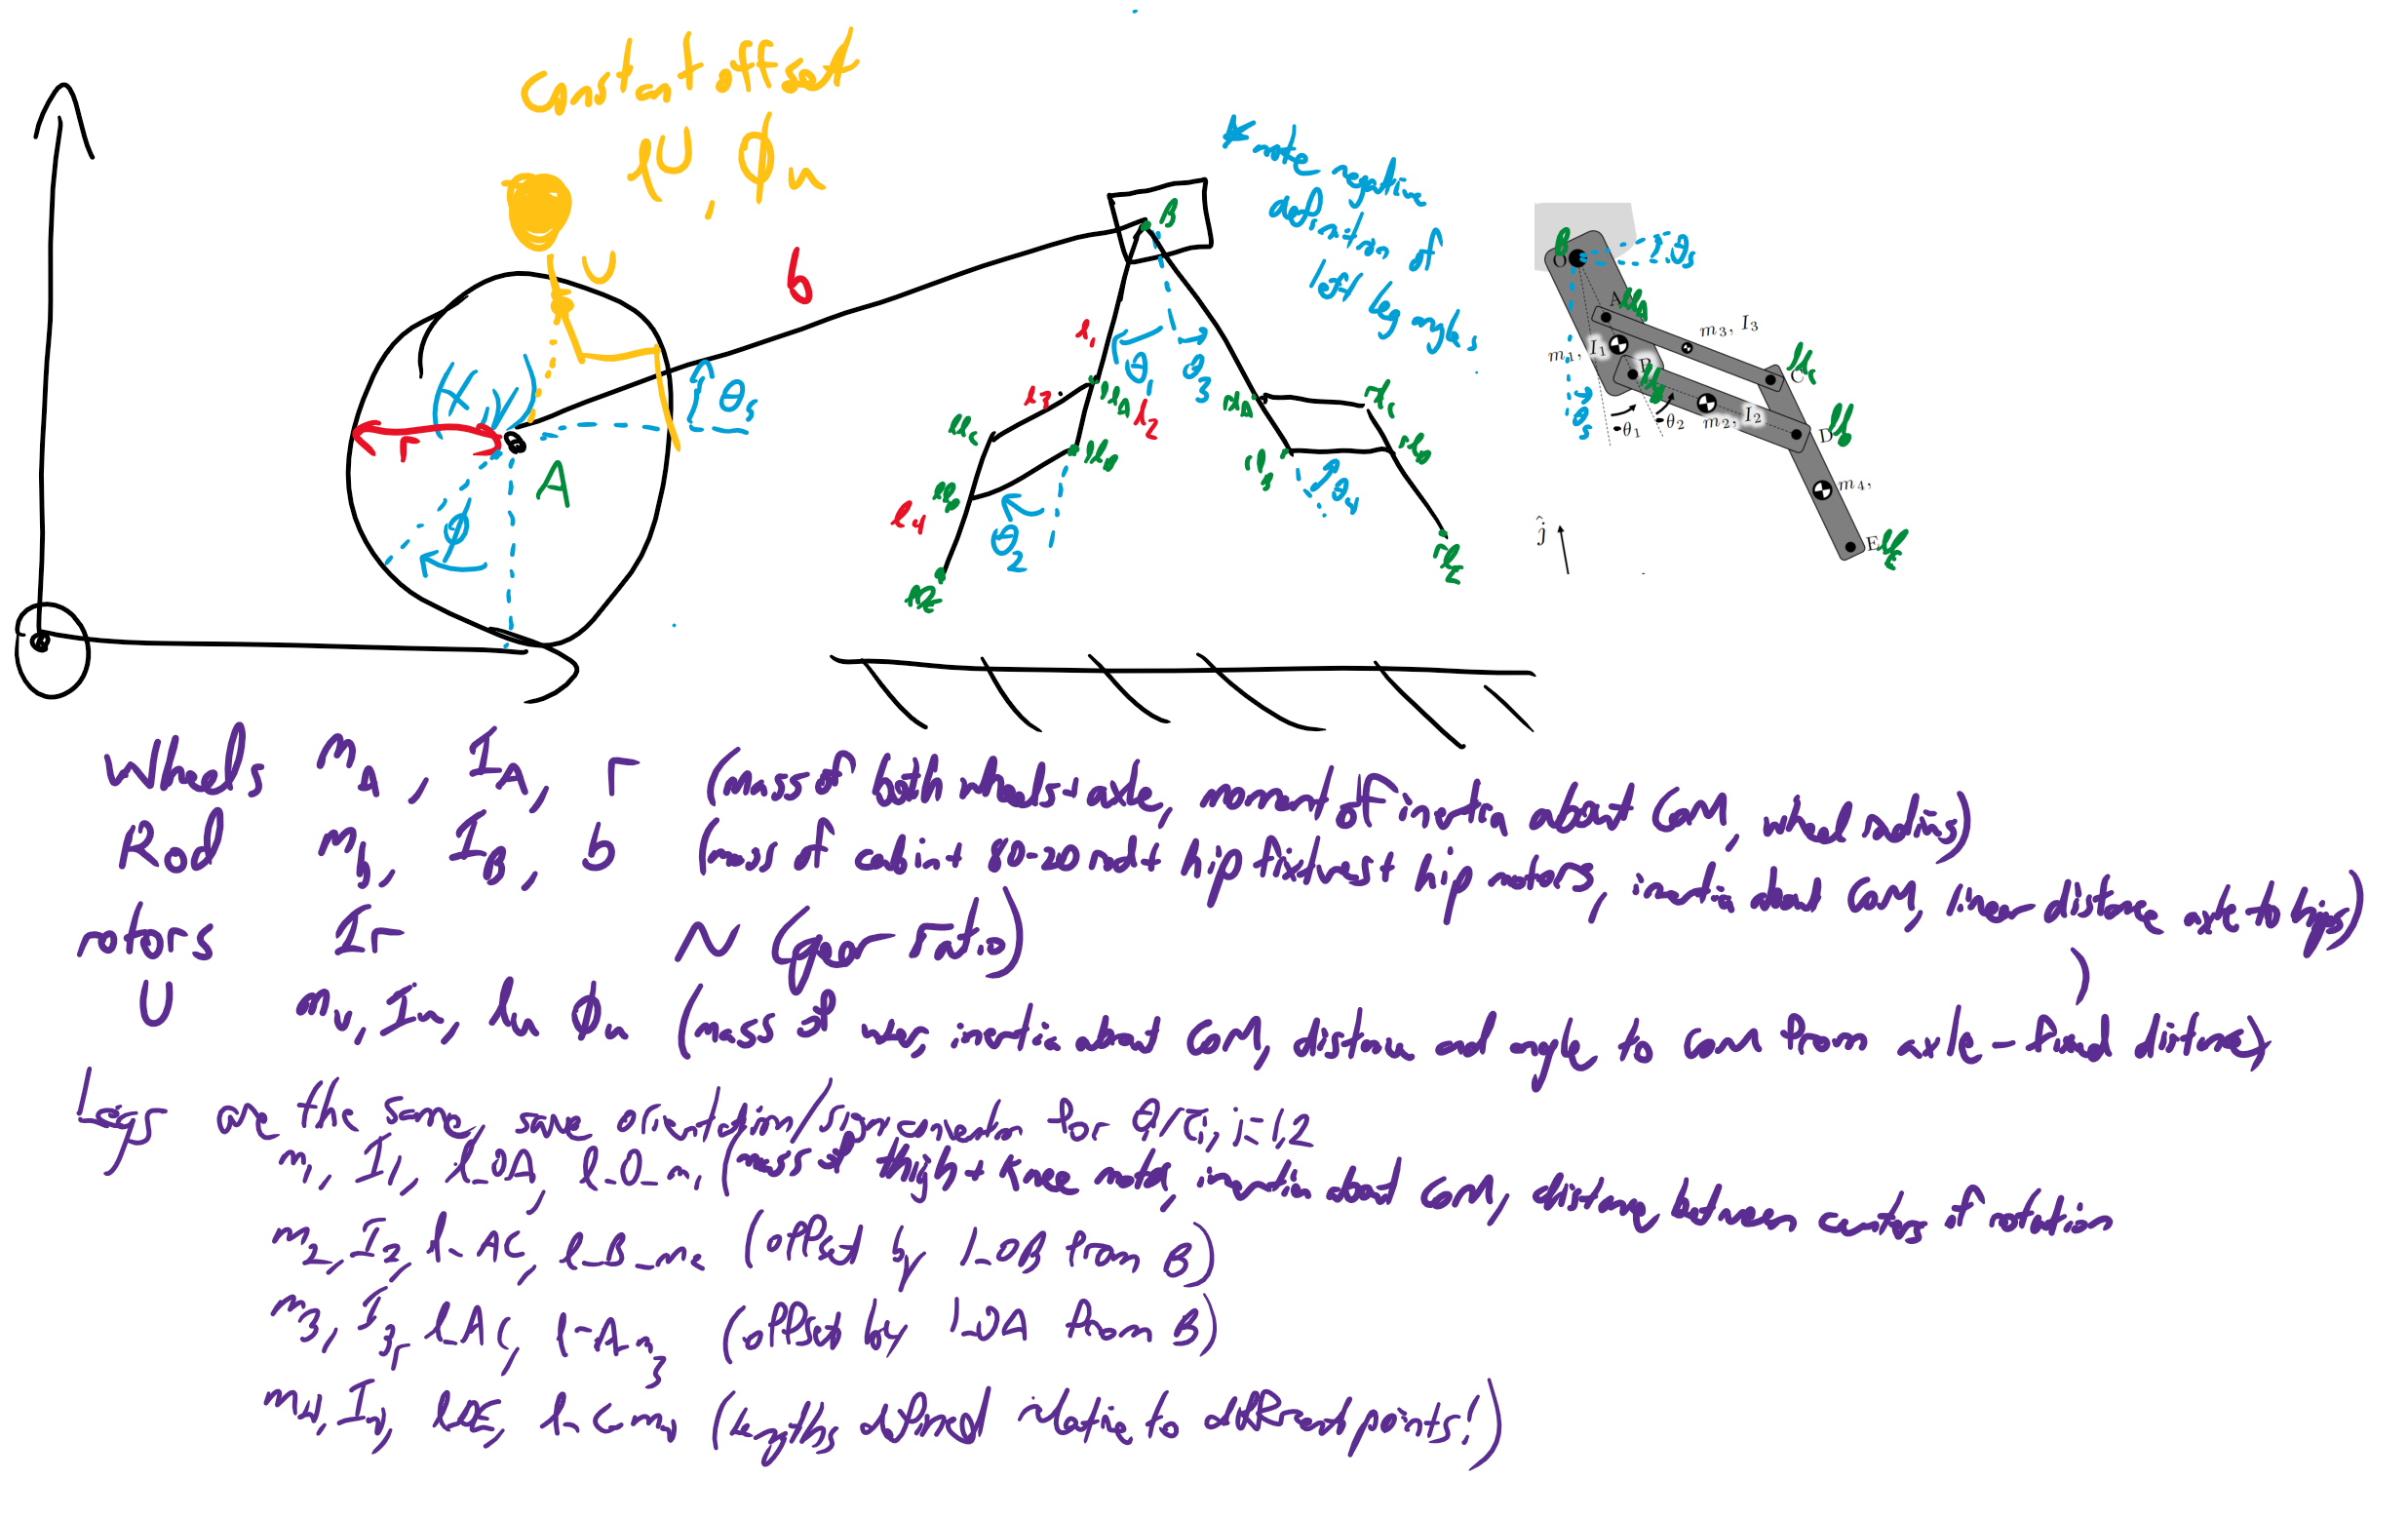 constant offset
lU, φu
* note negative
definition of
left leg angles
U
b
B
(x, y)
r
A
θs
φ
l1
l2
l3
l4
θ1
θ2
θ3
θ4
O
A
B
C
D
E
m1, I1
m2, I2
m3, I3
m4,
-θ1
-θ2
ĵ
Wheels mA, IA, r (mass of both wheels + axle, moment of inertia about COM, wheel radius)
Rod mb, IB, b (mass of cabin + 80-20 rod + hip fixtures + hip motors, inertia about COM, linear distance axle to hips)
rotors Ir N (gear ratio)
U mu, Iu, lu φu (mass of user, inertia about COM, distance and angle to COM from axle - fixed distance)
Legs are the same, same orientation/sign convention for θi/τi, i=1,2
m1, I1, l_OA, l_O_m1 (mass of thigh + knee motor, inertia about COM, distance between centers of rotation
m2, I2, l_AC, l_B_m2 (offset by l_OB from B)
m3, I3, l_AC, l_A_m3 (offset by l_OA from B)
m4, I4, l_CE, l_C_m4 (lengths defined relative to different points!)